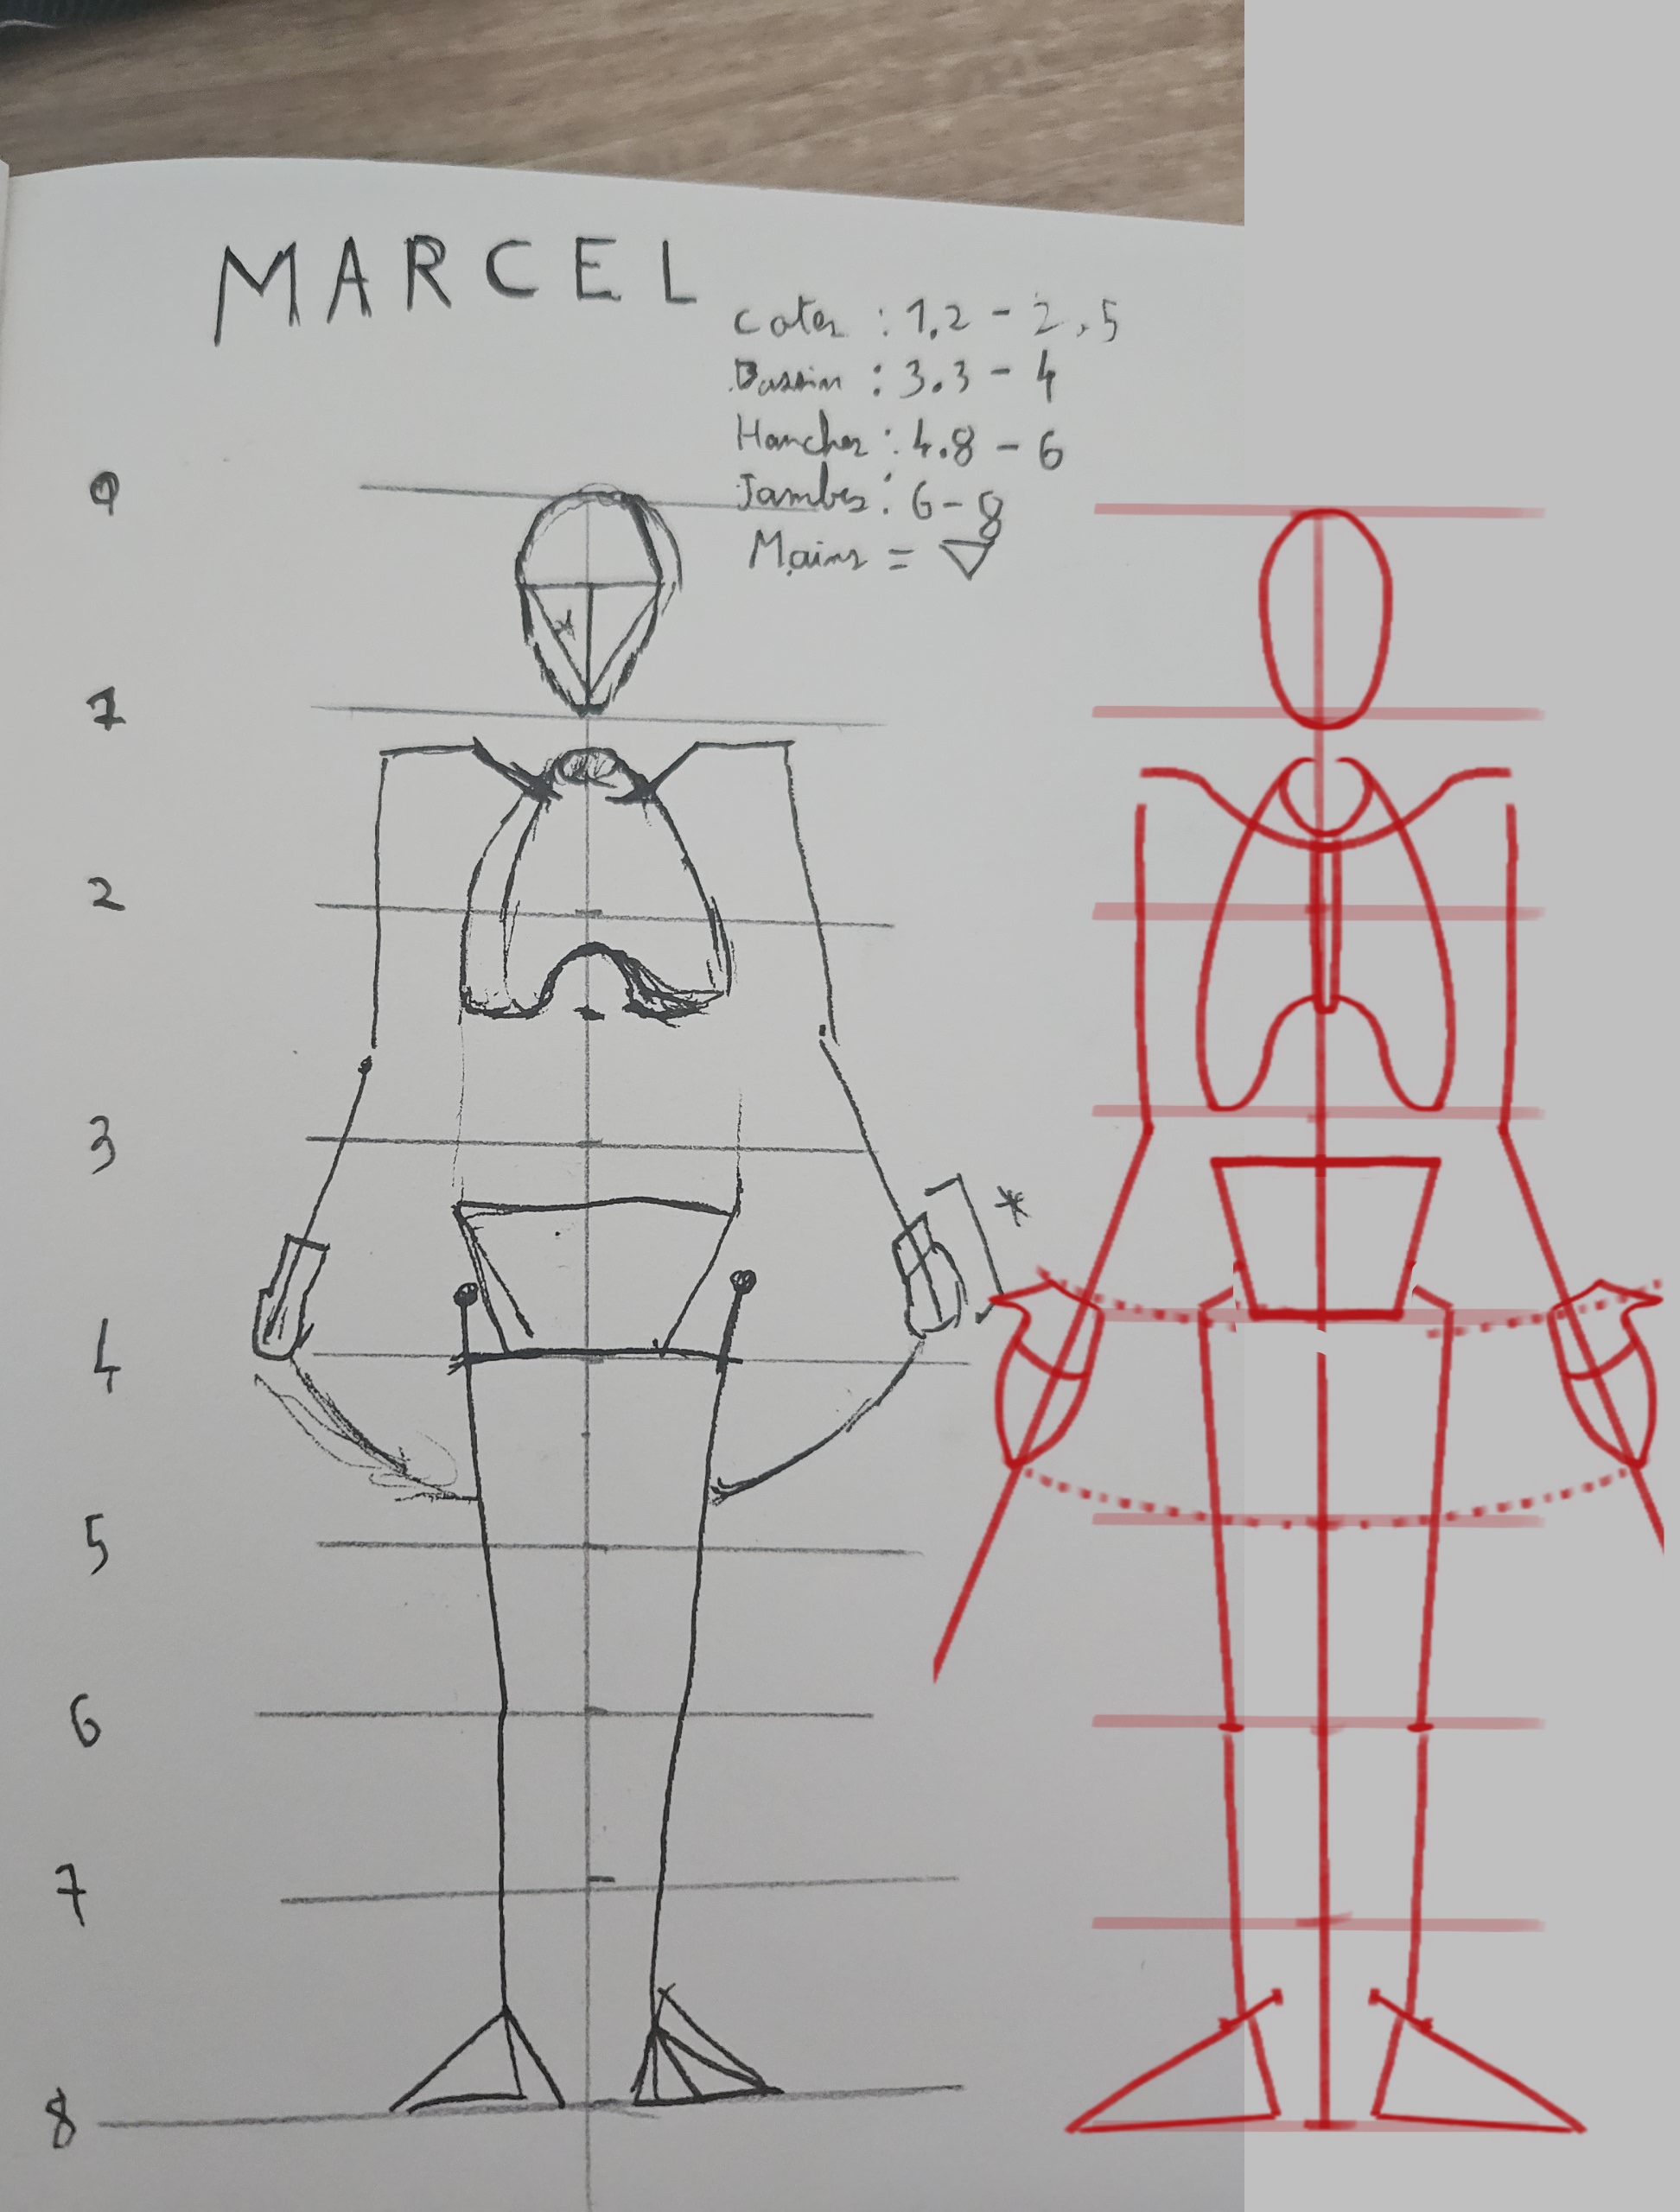 MARCEL
Cotes : 1.2 - 2.5
Bassin : 3.3 - 4
Hanches : 4.8 - 6
Jambes : 6 - 8
Mains = ▽
0
1
2
3
*
4
5
6
7
8